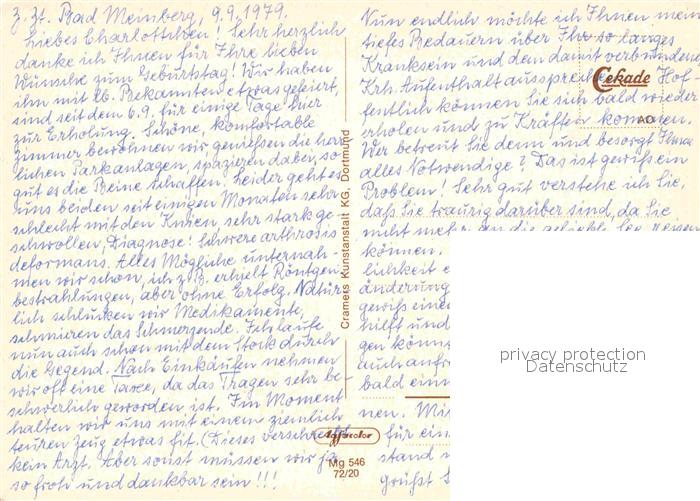 z. Zt. Bad Meinberg, 9.9.1979.
Liebes Charlottchen! Sehr herzlich
danke ich Ihnen für Ihre lieben
Wünsche zum Geburtstag! Wir haben
ihn mit lb. Bekannten etwas gefeiert,
sind seit dem 6.9. für einige Tage hier
zur Erholung. Schöne, komfortable
Zimmer bewohnen wir, genießen die herr-
lichen Parkanlagen, spazieren dabei, so
gut es die Beine schaffen. Leider geht es
uns beiden seit einigen Monaten sehr
schlecht mit den Knien, sehr stark ge-
schwollen, Diagnose: schwere arthrosis
deformans. Alles Mögliche unternah-
men wir schon, ich z. B. erhielt Röntgen-
bestrahlungen, aber ohne Erfolg. Natür-
lich schlucken wir Medikamente,
schmieren das Schmerzende. Ich laufe
nun auch schon mit dem Stock durch
die Gegend. Nach Einkäufen nehmen
wir oft eine Taxe, da das Tragen sehr be-
schwerlich geworden ist. Im Moment
halten wir uns mit einem ziemlich
teuren Zeug etwas fit. (Dieses verschreibt
kein Arzt. Aber sonst müssen wir ja
so froh und dankbar sein!!!
Cramers Kunstanstalt KG, Dortmund
Agfacolor
Mg 546
72/20
Nun endlich möchte ich Ihnen mein
tiefes Bedauern über Ihr so langes
Kranksein und den damit verbundenen
Krh. Aufenthalt aussprechen. Hof-
fentlich können Sie sich bald wieder
erholen und zu Kräften kommen.
Wer betreut Sie denn und besorgt Ihnen
alles Notwendige? Das ist gewiß ein
Problem! Sehr gut verstehe ich Sie,
daß Sie traurig darüber sind, da Sie
nicht mehr an die geliebte See reisen
können.
lichkeit
änderung
gewiß einen
hilft und
gen könn
auch anfr
bald ein
nen. Mit
für ein
stand
grüßt
Cekade
AO
privacy protection
Datenschutz